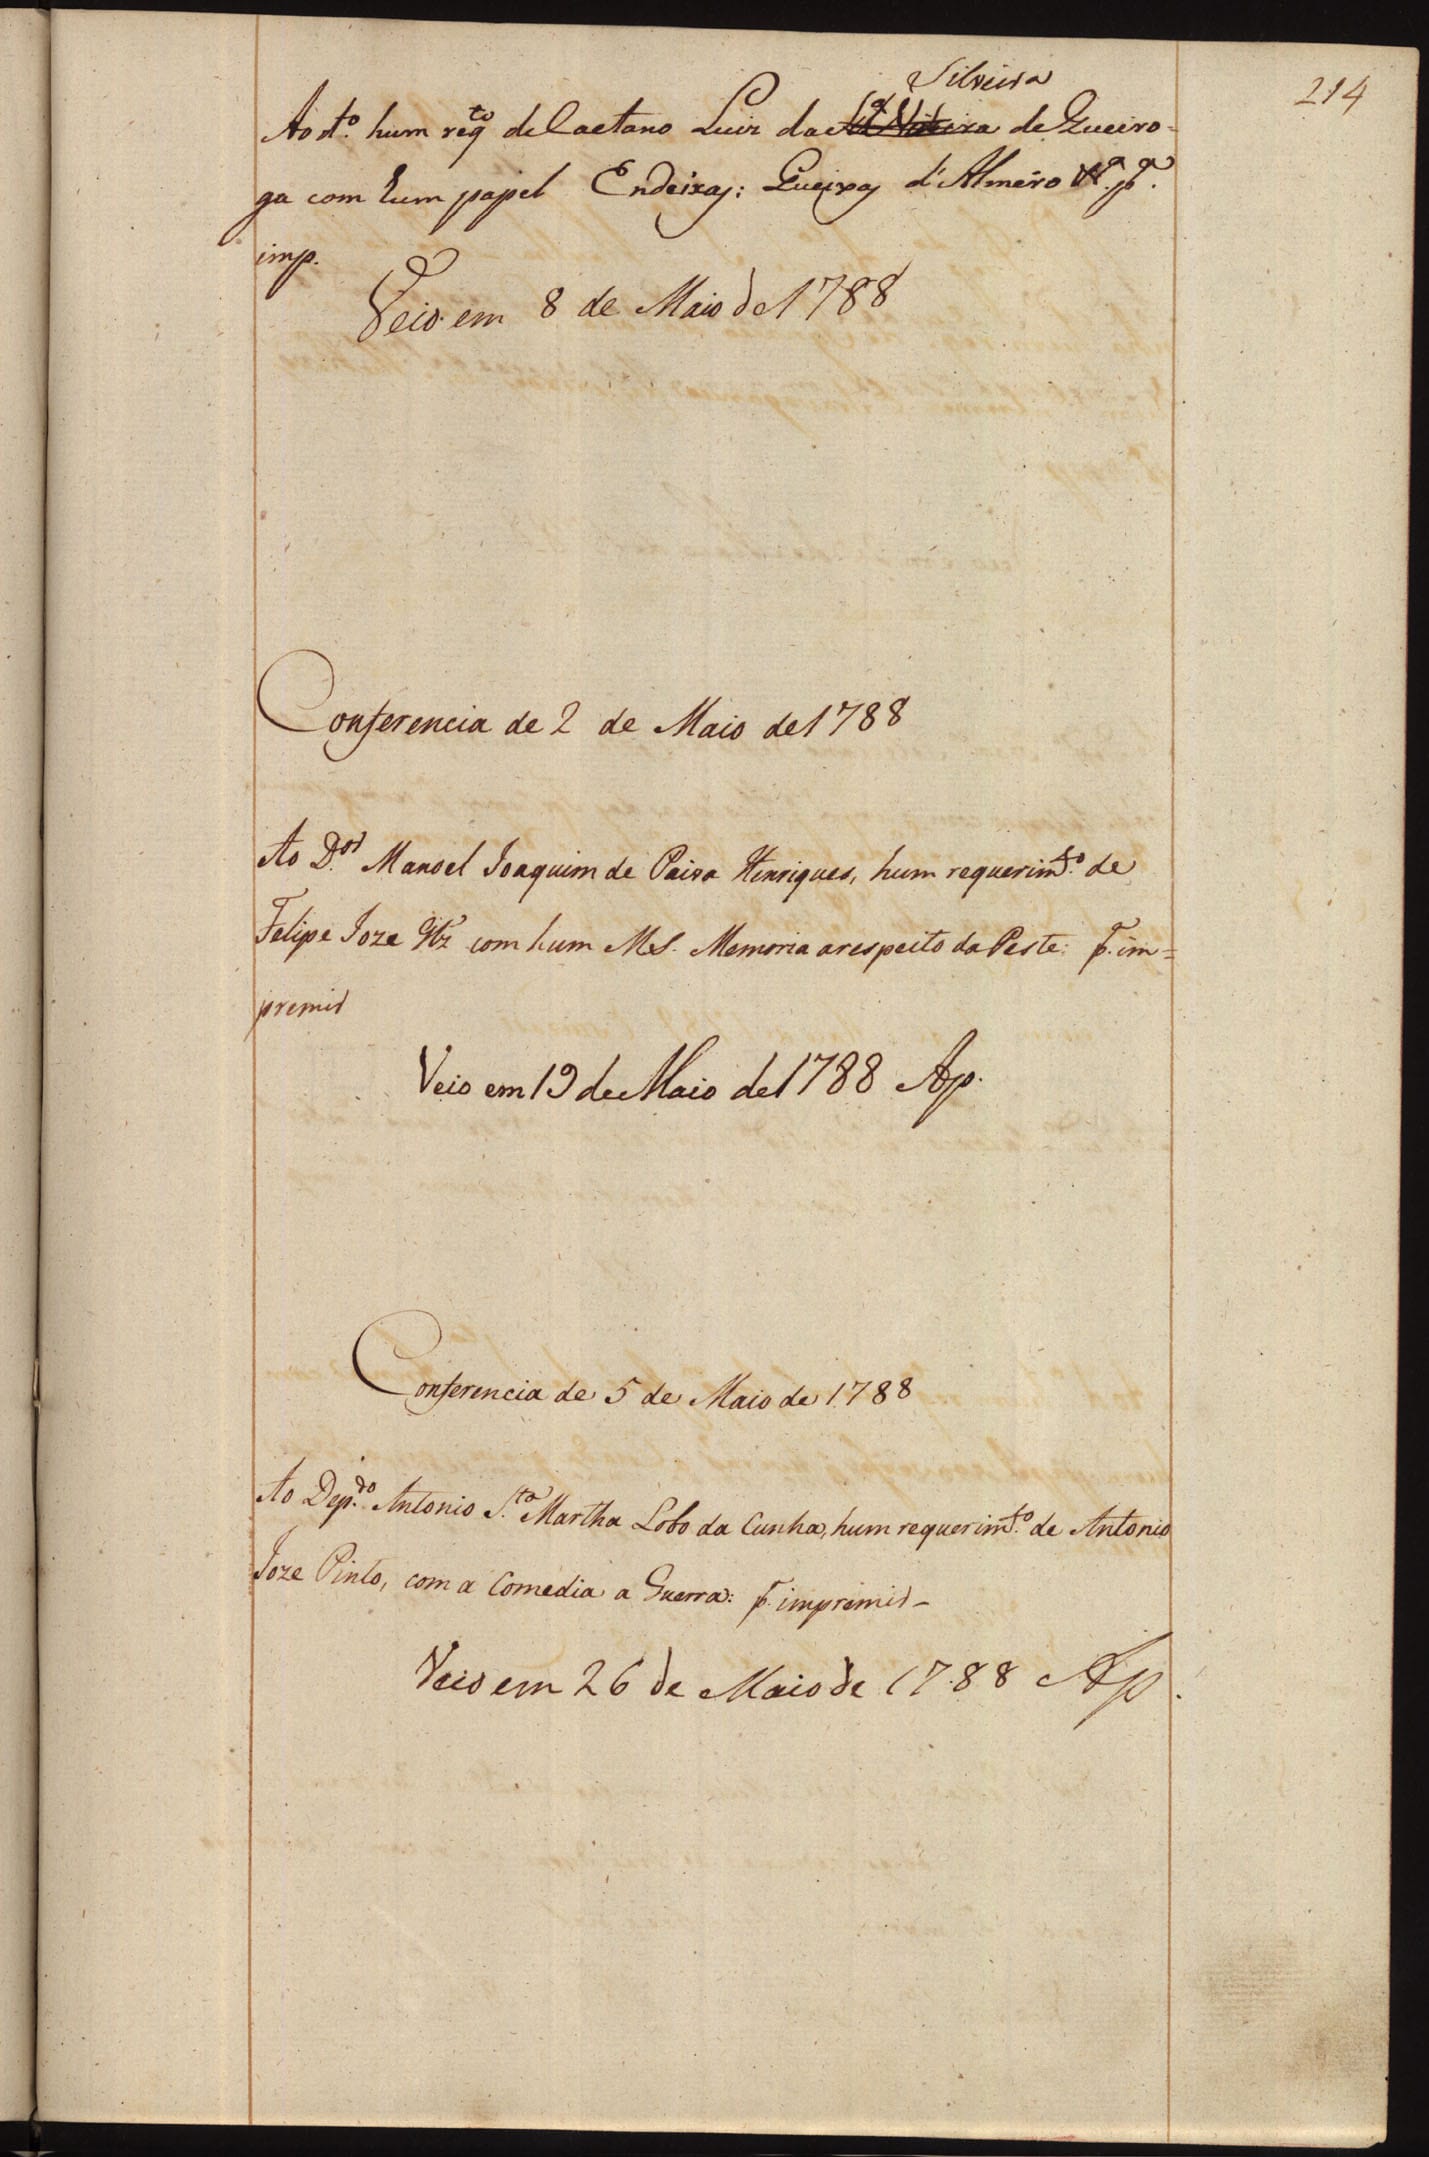 214
Silveira
Ao dto. hum reqto de Caetano Luiz da de Queiro-
ga com hum papel Endeixas: Queixas d'Almeno &a. pa.
imp.
Veio em 8 de Maio de 1788
Conferencia de 2 de Maio de 1788
Ao Dor. Manoel Joaquim de Paiva Henriques, hum requerimto. de
Felipe Joze com hum MS. Memoria a respeito da Peste: p. im=
premir
Veio em 19 de Maio de 1788 Ap.
Conferencia de 5 de Maio de 1788
Ao Depdo. Antonio Sta. Martha Lobo da Cunha, hum requerimto. de Antonio
Joze Pinto, com a Comedia a Guerra: p. imprimir -
Veio em 26 de Maio de 1788 Ap.